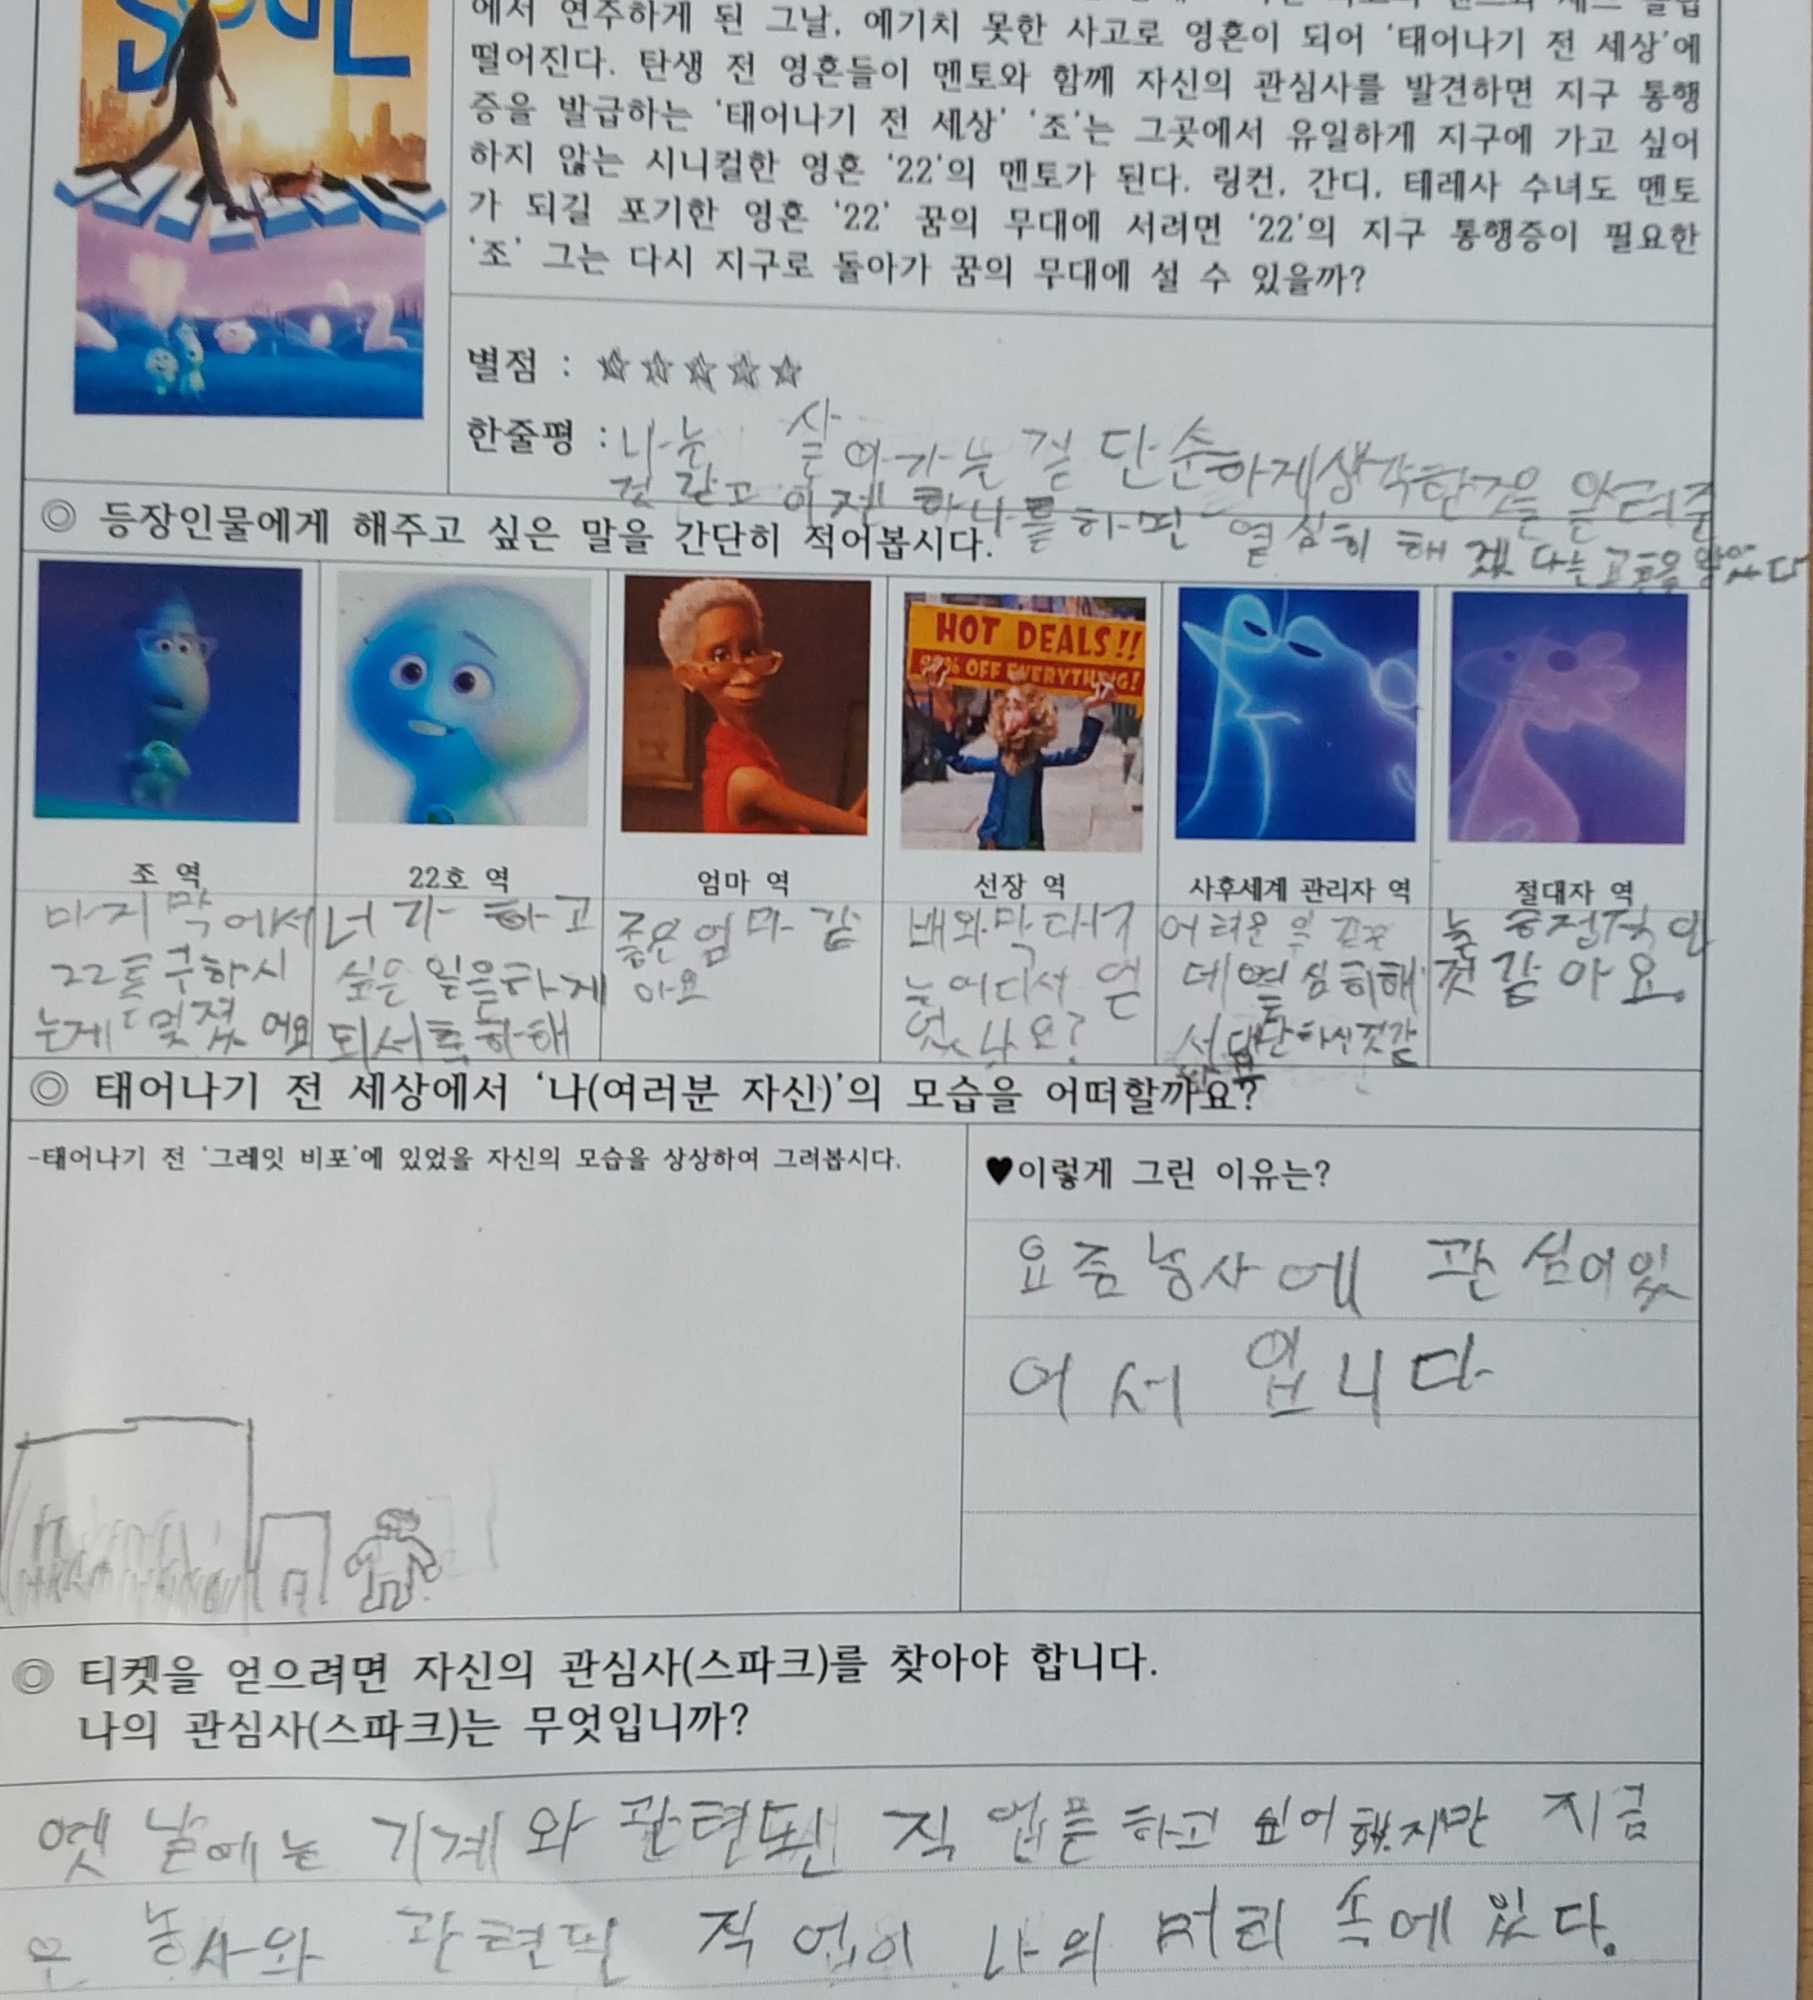 SOUL
에서 연주하게 된 그날, 예기치 못한 사고로 영혼이 되어 '태어나기 전 세상'에
떨어진다. 탄생 전 영혼들이 멘토와 함께 자신의 관심사를 발견하면 지구 통행
증을 발급하는 '태어나기 전 세상' '조'는 그곳에서 유일하게 지구에 가고 싶어
하지 않는 시니컬한 영혼 '22'의 멘토가 된다. 링컨, 간디, 테레사 수녀도 멘토
가 되길 포기한 영혼 '22' 꿈의 무대에 서려면 '22'의 지구 통행증이 필요한
'조' 그는 다시 지구로 돌아가 꿈의 무대에 설 수 있을까?
별점 : ☆☆☆☆☆
한줄평 : 나는 살아가는 걸 단순하게생각한것을 알려준
것 같고 이젠 하나를하면 열심히 해겠다는
◎ 등장인물에게 해주고 싶은 말을 간단히 적어봅시다.
HOT DEALS!!
OFF EVERYTHING!
조 역
마지막에서
22를 구하시
는게 멋졌어요
22호 역
너가 하고
싶은 일을하게
되서축하해
엄마 역
좋은엄마 같
아요
선장 역
배와막대기
는어디서 얻
었나요?
사후세계 관리자 역
어려운
데열심히해
서대단하신것같
절대자 역
늘 긍정적인
것 같아요.
◎ 태어나기 전 세상에서 '나(여러분 자신)'의 모습을 어떠할까요?
-태어나기 전 '그레잇 비포'에 있었을 자신의 모습을 상상하여 그려봅시다.
♥이렇게 그린 이유는?
요즘농사에 관심이있
어서 입니다
◎ 티켓을 얻으려면 자신의 관심사(스파크)를 찾아야 합니다.
나의 관심사(스파크)는 무엇입니까?
옛날에는 기계와 관련된 직업을 하고 싶어했지만 지금
은 농사와 관련된 직업이 나의 머리 속에있다.